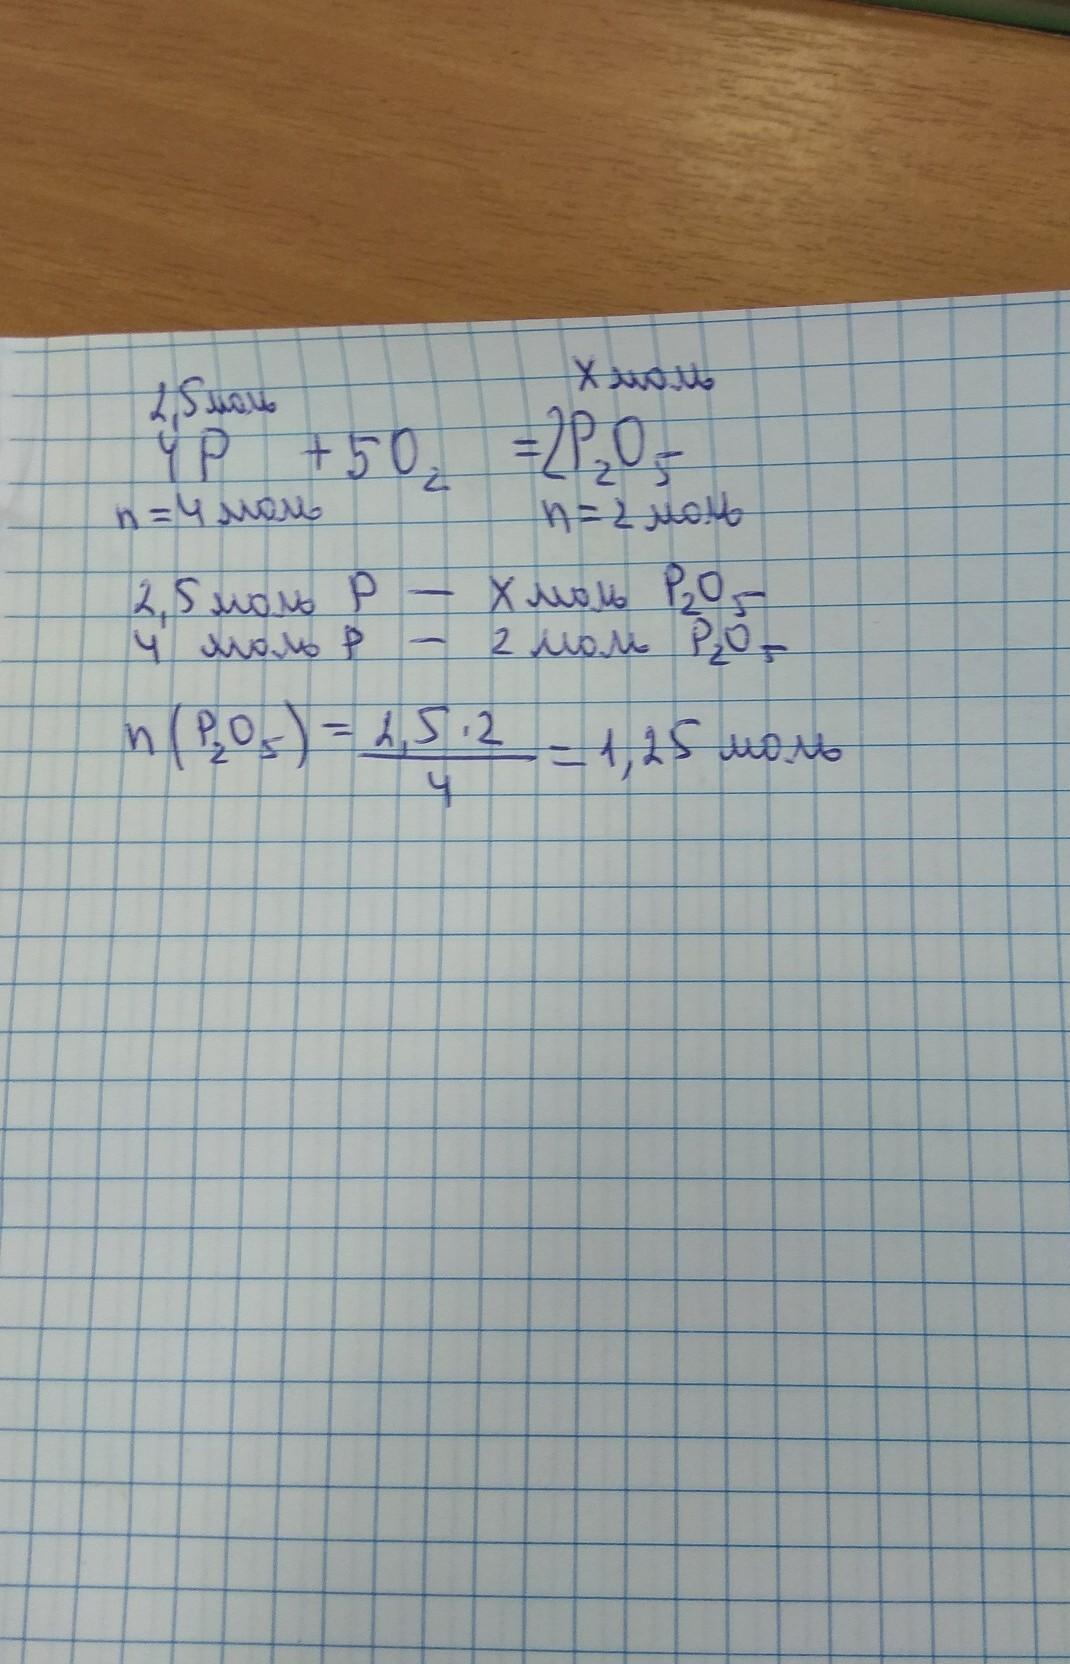 2,5 моль x моль
4P + 5O₂ = 2P₂O₅
n = 4 моль n = 2 моль
2,5 моль P — x моль P₂O₅
4 моль P — 2 моль P₂O₅
n(P₂O₅) = 2,5 · 2 / 4 = 1,25 моль